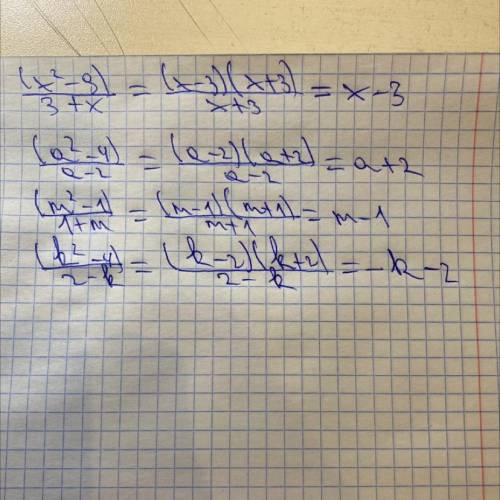 (x²-9)/(3+x) = (x-3)(x+3)/(x+3) = x-3
(a²-4)/(a-2) = (a-2)(a+2)/(a-2) = a+2
(m²-1)/(1+m) = (m-1)(m+1)/(m+1) = m-1
(k²-4)/(2-k) = (k-2)(k+2)/(2-k) = -k-2